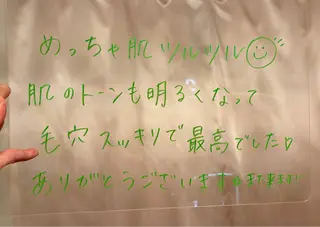 めっちゃ肌ツルツル
肌のトーンも明るくなって
毛穴スッキリで最高でした♡
ありがとうございます また来ます!